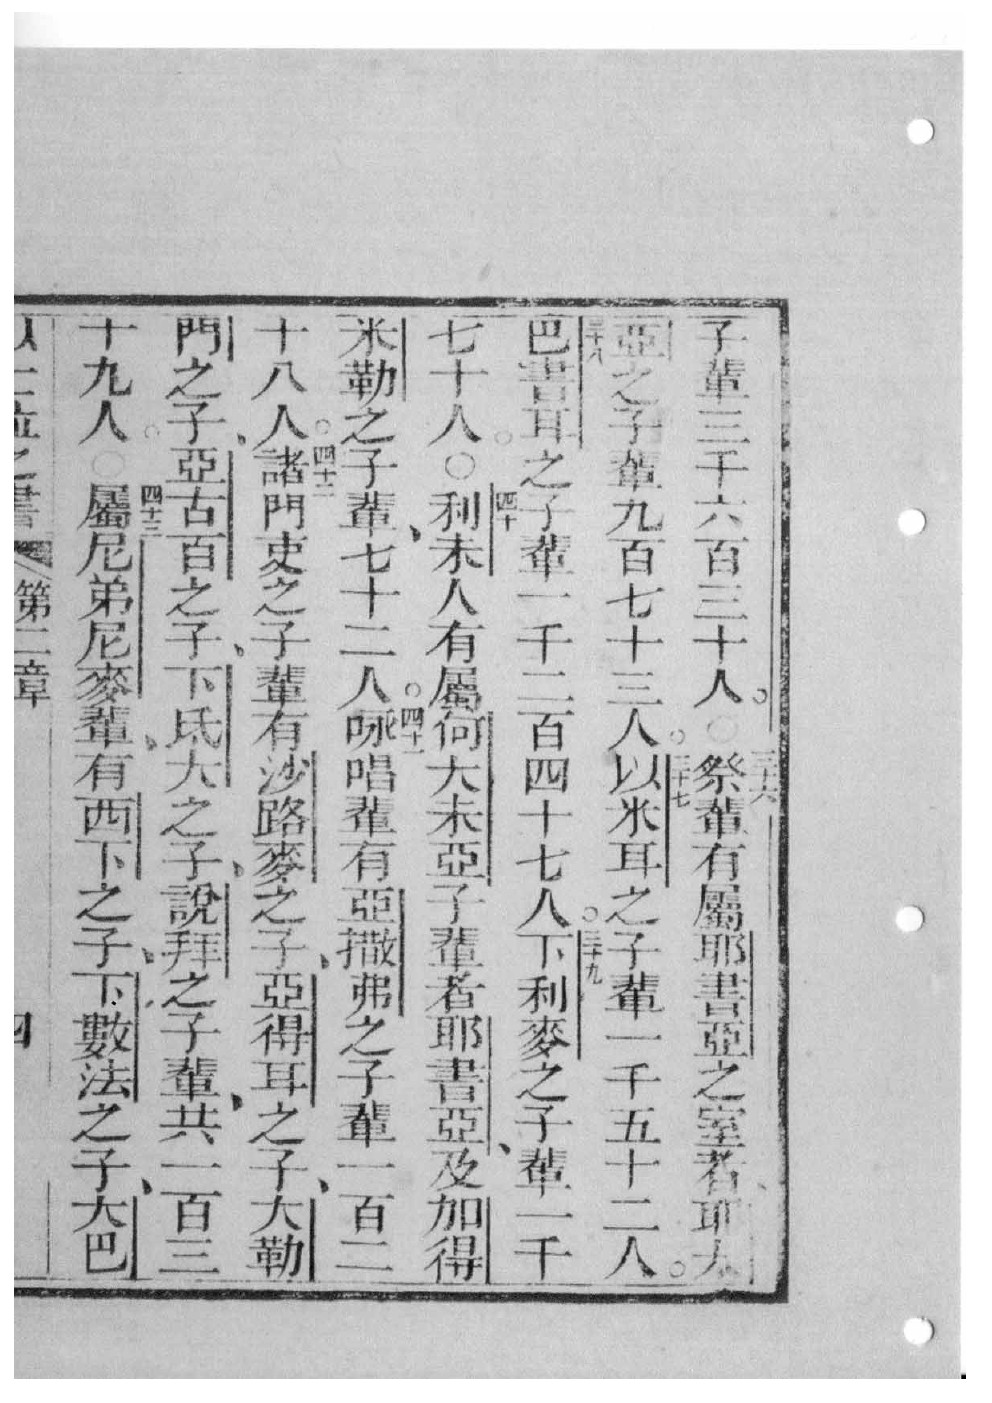 子輩三千六百三十人。○三十六祭輩有屬耶書亞之室者、耶大
亞之子輩九百七十三人。三十七以米耳之子輩一千五十二人。
三十八巴書耳之子輩一千二百四十七人。三十九下利麥之子輩一千
七十人。○四十利未人有屬何大未亞子輩者耶書亞、及加得
米勒之子輩、七十二人。四十一咏唱輩有亞撒弗之子輩一百二
十八人。四十二諸門吏之子輩有沙路麥之子、亞得耳之子、大勒
門之子、亞古百之子、下氐大之子、說拜之子輩、共一百三
十九人。○四十三屬尼弟尼麥輩、有西下之子、下數法之子、大巴
以士拉之書 第二章 四